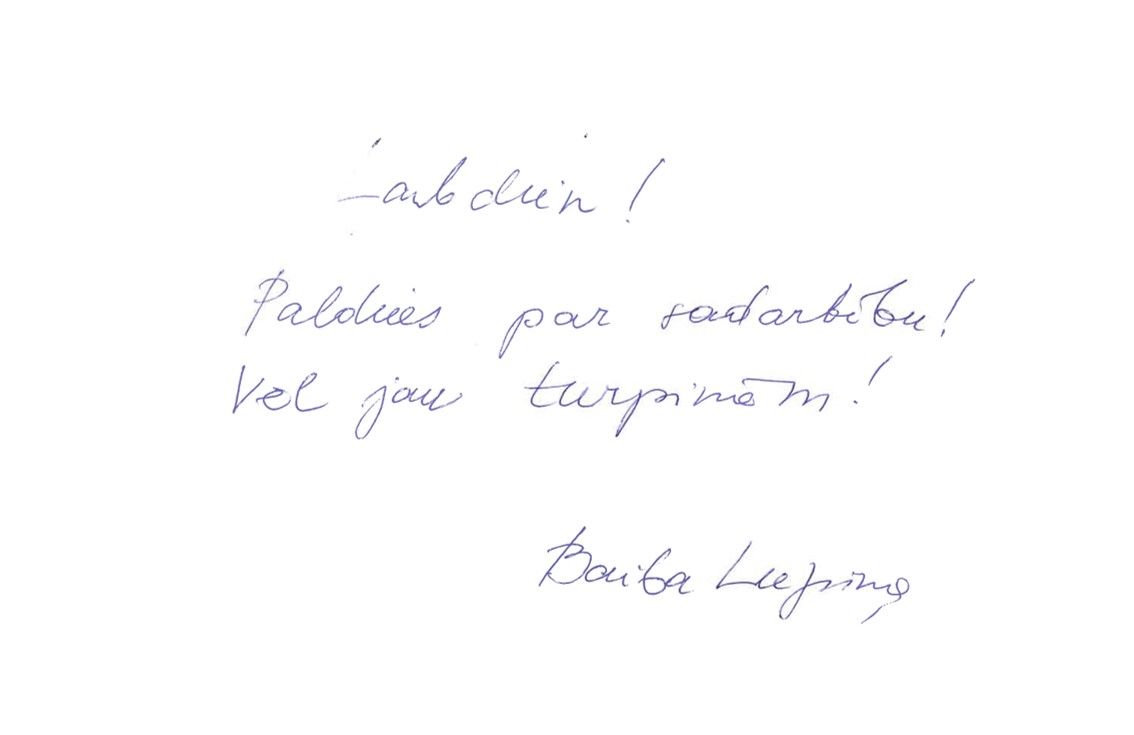 Labdien!
Paldies par sadarbību!
Vēl jau turpinām!
Baiba Liepiņa